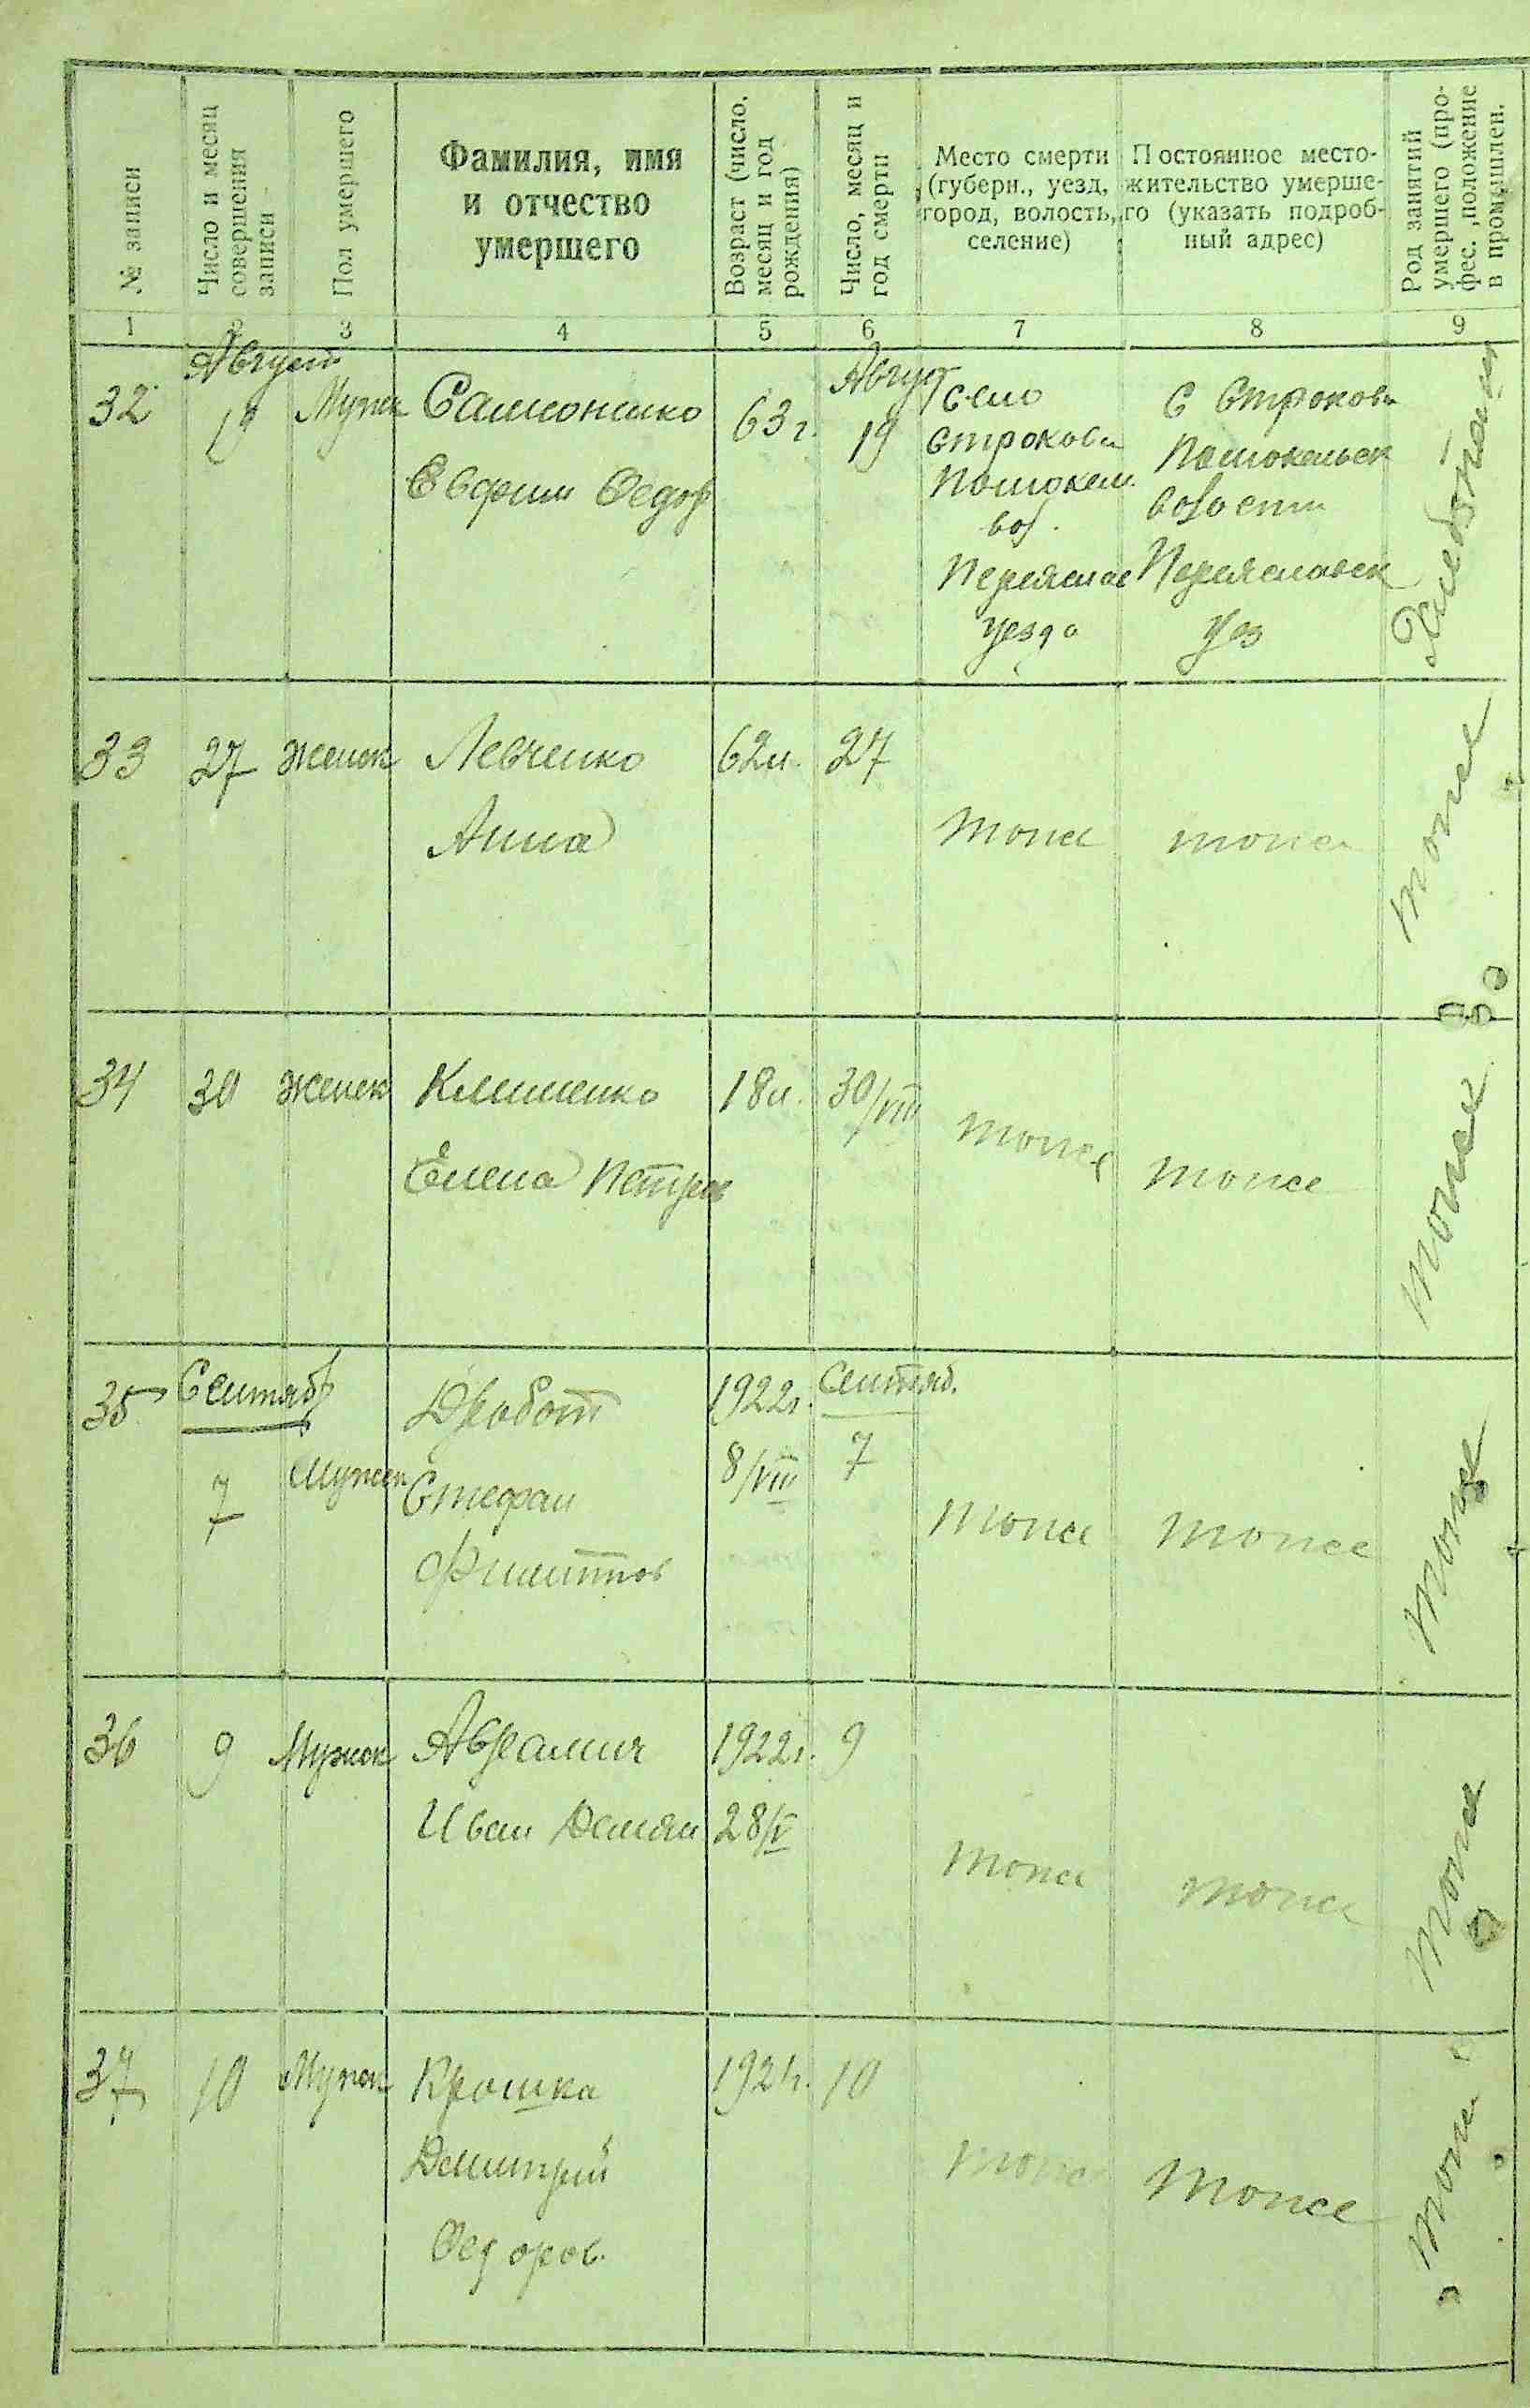 № записи
Число и месяц
совершения
записи
Пол умершего
Фамилия, имя
и отчество
умершего
Возраст (число,
месяц и год
рождения)
Число, месяц и
год смерти
Место смерти
(губерн., уезд,
город, волость,
селение)
Постоянное место-
жительство умерше-
го (указать подроб-
ный адрес)
Род занятий
умершего (про-
фес., положение
в промышлен.
1 2 3 4 5 6 7 8 9
Август
32 19 Мужск
Евфим Федор
63 г.
Август
19
село
Строкова
вол.
Переяслав
уезда
с Строкова
волости
Переяславск
Уез
33 27 Женск Левченко 62 л. 27
Анна
тоже тоже тоже
34 30 Женск Клименко 18 л. 30/VIII
Елена Петров
тоже тоже тоже
35 Сентябр Дробот 1922 г. Сентяб.
7 Мужск Стефан 8/VIII 7
Филиппов
тоже тоже тоже
36 9 Мужск Аврамич 1922 г. 9
Иван Демян 28/V
тоже тоже тоже
37 10 Мужск Крошка 10
Демитрий
Федоров.
тоже тоже тоже